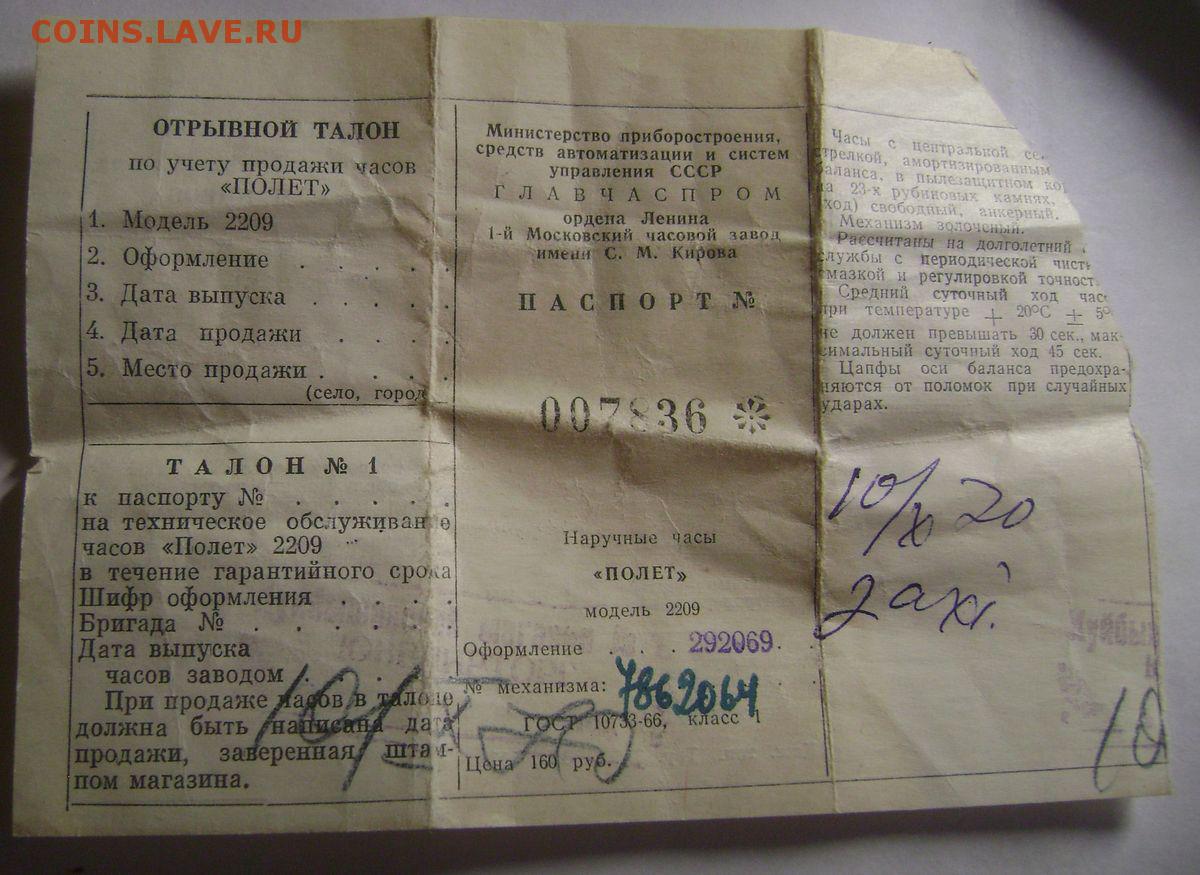 COINS.LAVE.RU
ОТРЫВНОЙ ТАЛОН
по учету продажи часов
«ПОЛЕТ»
1. Модель 2209
2. Оформление . . . . .
3. Дата выпуска . . . .
4. Дата продажи . . . .
5. Место продажи . . . .
(село, город
ТАЛОН № 1
к паспорту № . . . . .
на техническое обслуживание
часов «Полет» 2209
в течение гарантийного срока
Шифр оформления . . . .
Бригада № . . . . . .
Дата выпуска
часов заводом . . . . .
При продаже часов в талоне
должна быть написана дата
продажи, заверенная штам-
пом магазина.
Министерство приборостроения,
средств автоматизации и систем
управления СССР
ГЛАВЧАСПРОМ
ордена Ленина
1-й Московский часовой завод
имени С. М. Кирова
ПАСПОРТ №
007836
Наручные часы
«ПОЛЕТ»
модель 2209
Оформление . . . 292069.
№ механизма: 7862064
ГОСТ 10733-66, класс 1
Цена 160 руб.
Часы с центральной се
стрелкой, амортизированным
баланса, в пылезащитном ко
на 23-х рубиновых камнях,
ход) свободный, анкерный.
Механизм золоченый.
Рассчитаны на долголетний
службы с периодической чист
смазкой и регулировкой точност
Средний суточный ход час
при температуре + 20°С ± 5°
не должен превышать 30 сек., мак-
симальный суточный ход 45 сек.
Цапфы оси баланса предохра-
няются от поломок при случайных
ударах.
10/X 70
Куйбы
10